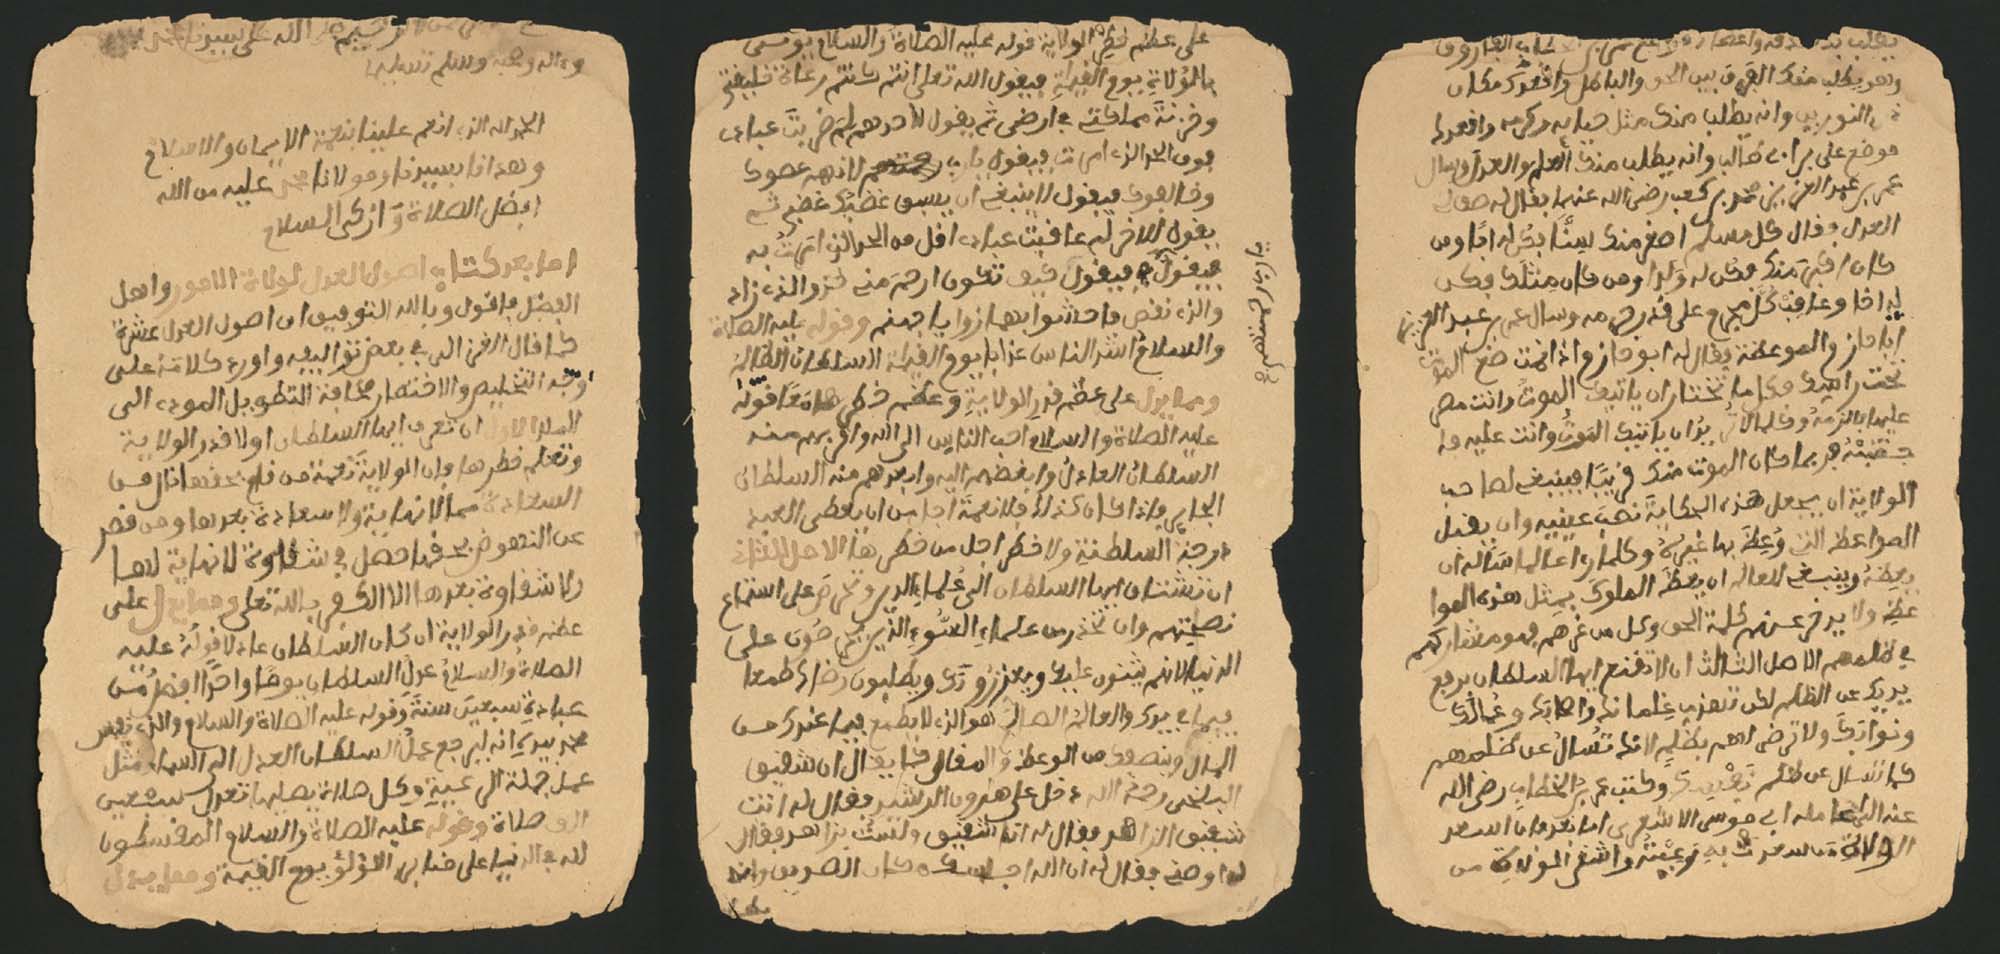 الرحيم صلى الله على سيدنا محمد
وءاله وصحبه وسلم تسليما
الحمد لله الذي أنعم علينا بنعمة الإيمان والإسلام
وهدانا بسيدنا ومولانا محمد عليه من الله
أفضل الصلاة وأزكى السلام
أما بعد كتاب أصول العدل لولاة الأمور وأهل
الفضل فأقول وبالله التوفيق ان أصول العدل عشرة
كما قال الغزالي في بعض تواليفه وأورد كلامه على
وجه التلخيص والاختصار مخافة التطويل المودي الى
الملل الأول أن تعرف أيها السلطان أولا قدر الولاية
وتعلم خطرها فان الولاية نعمة من قام بحقها نال من
السعادة مما لا نهاية ولا سعادة بعدها ومن قصر
عن النهوض بحقها حصل في شقاوة لا نهاية لها
ولا شقاوة بعدها الا الكفر بالله تعلى ومما يدل على
عظم قدر الولاية ان كان السلطان عادلا قوله عليه
الصلاة والسلام عدل السلطان يوما واحدا أفضل من
عبادة سبعين سنة وقوله عليه الصلاة والسلام والذي نفس
محمد بيده انه ليرفع عمل السلطان العدل الى السماء مثل
عمل جملة الرعية وكل صلاة يصليها تعدل سبعين
ألف صلاة وقوله عليه الصلاة والسلام المقسطون
لله في الدنيا على منابر اللؤلؤ يوم القيمة ومما يدل
على عظم خطر الولاية قوله عليه الصلاة والسلام يوتى
بالولاة يوم القيمة فيقول الله تعلى أنتم كنتم رعاة خليقتي
وخزنة مملكتي في أرضي ثم يقول لأحدهم لم ضربت عبادي
فوق الحد الذي أمرت فيقول يا رب لانهم عصوك
وخالفوك فيقول لا ينبغي أن يسبق غضبك غضبي ثم
يقول للآخر لم عاقبت عبادي أقل من الحد الذي أمرت به
فيقول فيقول كيف تكون أرحم مني خذوا الذي زاد
والذي نقص فاحشوا بهما زوايا جهنم وقوله عليه الصلاة
والسلام أشد الناس عذابا يوم القيمة السلطان الظالم
ومما يدل على عظم قدر الولاية وعظم خطرها معا قوله
عليه الصلاة والسلام أحب الناس الى الله وأقربهم منه
السلطان العادل وأبغضهم إليه وأبعدهم منه السلطان
الجاير فاذا كان كذلك فلا نعمة أجل من أن يعطى العبد
درجة السلطنة ولا خطر أجل من خطرها الأصل الثاني
أن تشتاق أيها السلطان الى علماء الدين وتحرص على استماع
نصيحتهم وأن تحذر من علماء السوء الذين يحرصون على
الدنيا لأنهم يثنون عليك ويعززوك ويطلبون رضاك طمعا
فيما في يدك والعالم الصالح هو الذي لا يطمع فيما عندك من
المال وينصفك من الوعظ والمقال كما يقال ان شقيق
البلخي رحمه الله دخل على هرون الرشيد فقال له أنت
شقيق الزاهد فقال له أنا شقيق ولست بزاهد فقال
له أوصني فقال له ان الله أجلسك مكان الصديق وانه
يطلب
يطلب منك صدقه وأقعدك موضع عمر بن الخطاب الفاروق
وهو يطلب منك الفرق بين الحق والباطل وأقعدك مكان
ذي النورين وانه يطلب منك مثل حيايه وكرمه وأقعدك
موضع علي بن أبي طالب وانه يطلب منك العلم والعدل وسأل
عمر بن عبد العزيز محمد بن كعب رضي الله عنهما فقال له صف لي
العدل فقال كل مسلم أصغر منك سنا فكن له أبا ومن
كان أكبر منك فكن له ولدا ومن كان مثلك فكن
له أخا وعاقب كل مجرم على قدر جرمه وسأل عمر بن عبد العزيز
أبا حازم الموعظة فقال له أبو حازم إذا نمت ضع الموت
تحت راسك فكل ما تختار أن ياتيك الموت وأنت مصر
عليه فالزمه وكلما لا تريد أن ياتيك الموت وأنت عليه فا
جتنبه فربما كان الموت منك قريبا فينبغي لصاحب
الولاية أن يجعل هذه الحكاية نصب عينيه وأن يقبل
المواعظ التي وعظ بها غيره وكلما رأى عالما سأله أن
يعظه وينبغي للعالم أن يعظ الملوك بمثل هذه الموا
عظ ولا يدخر عنهم كلمة الحق وكل من غرهم فهو مشاركهم
في ظلمهم الأصل الثالث أن لا تقنع أيها السلطان برفع
يدك عن الظلم لكن تهذب غلمانك وأصحابك وعمالك
ونوابك ولا ترضى لهم بظلم لأنك تسأل عن ظلمهم
كما تسأل عن ظلم نفسك وكتب عمر بن الخطاب رضي الله
عنه الى عامله أبي موسى الأشعري أما بعد فان أسعد
الولاة من سعدت به رعيته وأشقى الولاة من